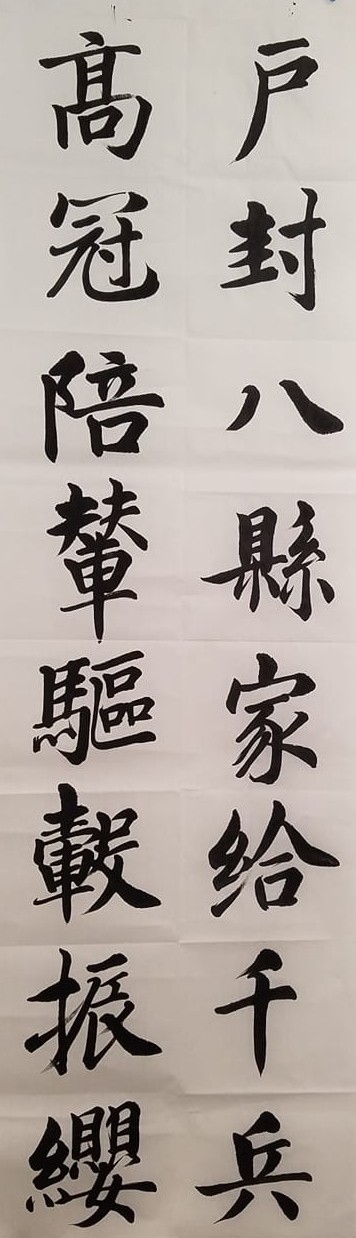 戶封八縣家给千兵
高冠陪輦驅轂振纓